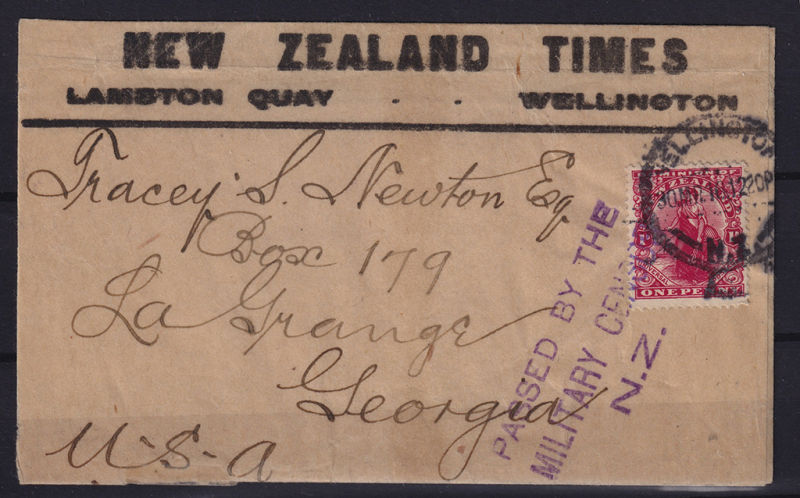 NEW ZEALAND TIMES
LAMBTON QUAY · · WELLINGTON
Tracey S. Newton Esq
Box 179
La Grange
Georgia
U-S-A
PASSED BY THE
MILITARY CENSOR
N.Z.
WELLINGTON
N.Z.
DOMINION OF
ZEALAND
UNIVERSAL
ONE PENNY